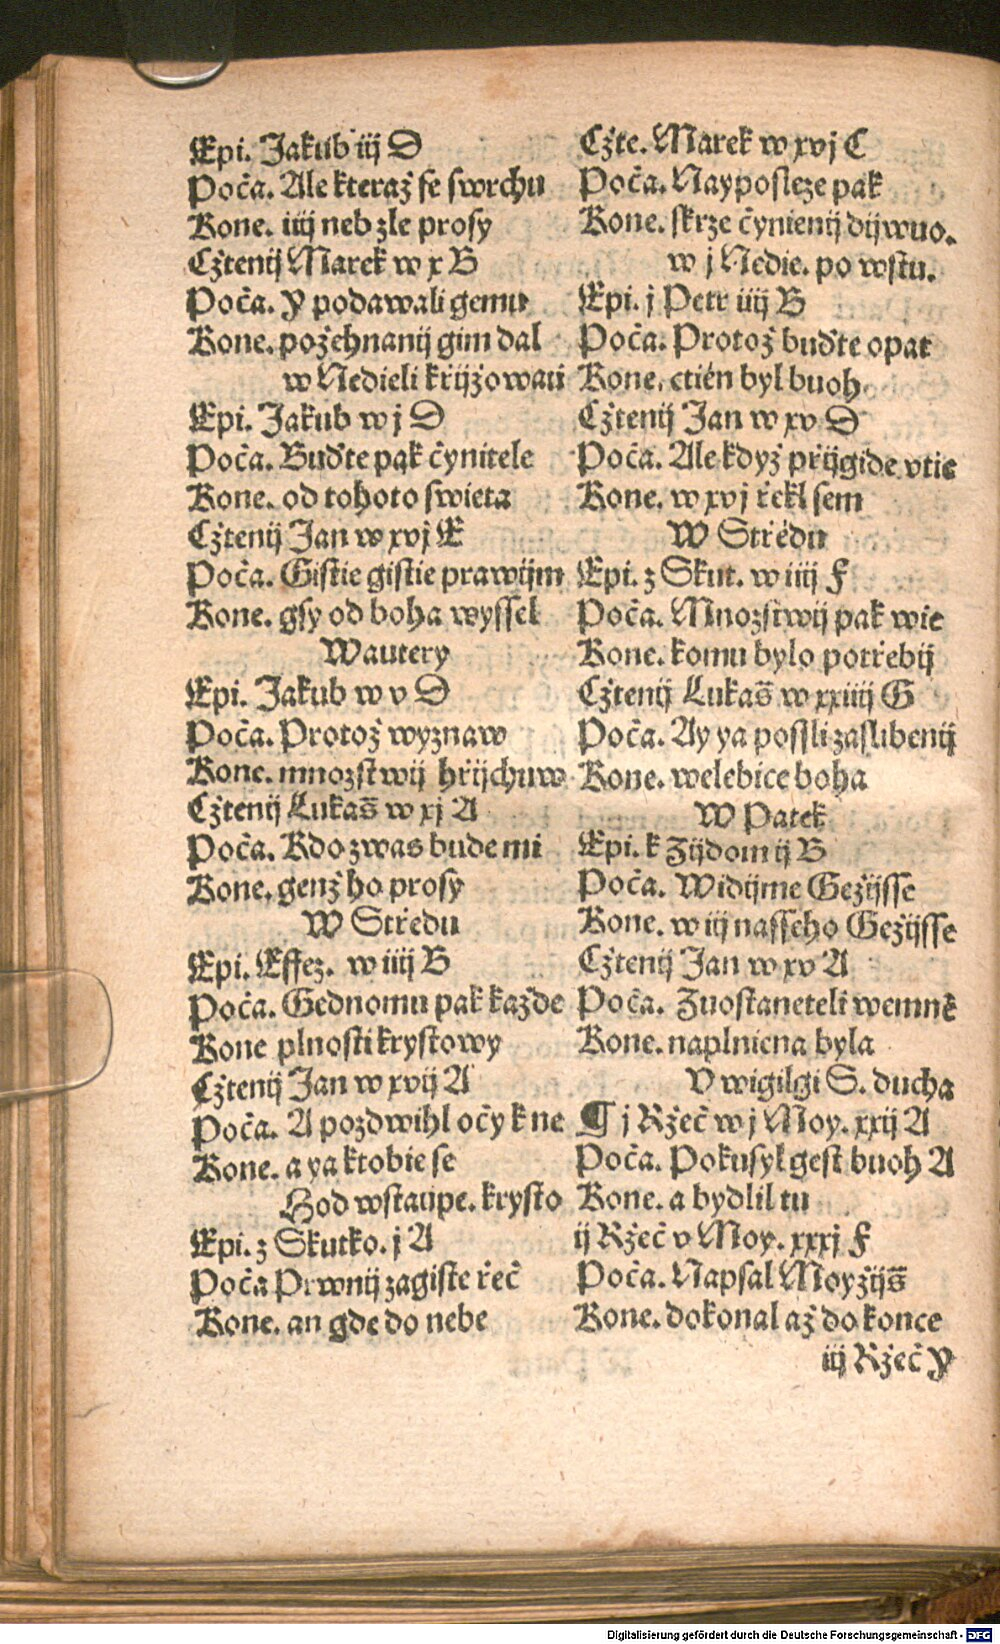 Epi. Jakub iij D
Poča. Ale kteraž se swrchu
Kone. iiij neb zle prosy
Cžtenij Marek w x B
Poča. Y podawali gemu
Kone. požehnanij gim dal
w Nedieli křijžowau
Epi. Jakub w j D
Poča. Buďte pak čynitele
Kone. od tohoto swieta
Cžtenij Jan w xvj E
Poča. Gistie gistie prawijm
Kone. gsy od boha wyssel
Wautery
Epi. Jakub w v D
Poča. Protož wyznaw
Kone. mnozstwij hřijchuw
Cžtenij Lukaš w xj A
Poča. Kdo zwas bude mi
Kone. genž ho prosy
W Středu
Epi. Effez. w iiij B
Poča. Gednomu pak každe
Kone plnosti krystowy
Cžtenij Jan w xvij A
Poča. A pozdwihl očy k ne
Kone. a ya k tobie se
Hod wstaupe. krysto
Epi. z Skutko. j A
Poča Prwnij zagiste řeč
Kone. an gde do nebe
Cžte. Marek w xvj C
Poča. Nayposleze pak
Kone. skrze čynienij dijwuo.
w j Nedie. po wstu.
Epi. j Petr iiij B
Poča. Protož buďte opat
Kone. ctién byl buoh
Cžtenij Jan w xv D
Poča. Ale když přijgide vtie
Kone. w xvj řekl sem
W Středu
Epi. z Skut. w iiij F
Poča. Mnozstwij pak wie
Kone. komu bylo potřebij
Cžtenij Lukaš w xxiiij G
Poča. Ay ya possli zaslibenij
Kone. welebice boha
W Patek
Epi. k Zijdom ij B
Poča. Widijme Gežijsse
Kone. w iij nasseho Gežijsse
Cžtenij Jan w xv A
Poča. Zuostaneteli wemně
Kone. naplniena byla
V wigilgi S. ducha
¶ j Ržeč w j Moy. xxij A
Poča. Pokusyl gest buoh A
Kone. a bydlil tu
ij Ržeč v Moy. xxxj F
Poča. Napsal Moyžijš
Kone. dokonal až do konce
iij Ržeč Y
Digitalisierung gefördert durch die Deutsche Forschungsgemeinschaft - DFG